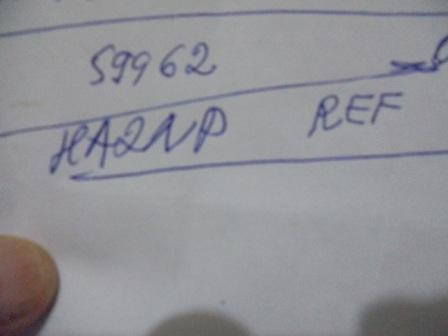 59962
HA2NP REF